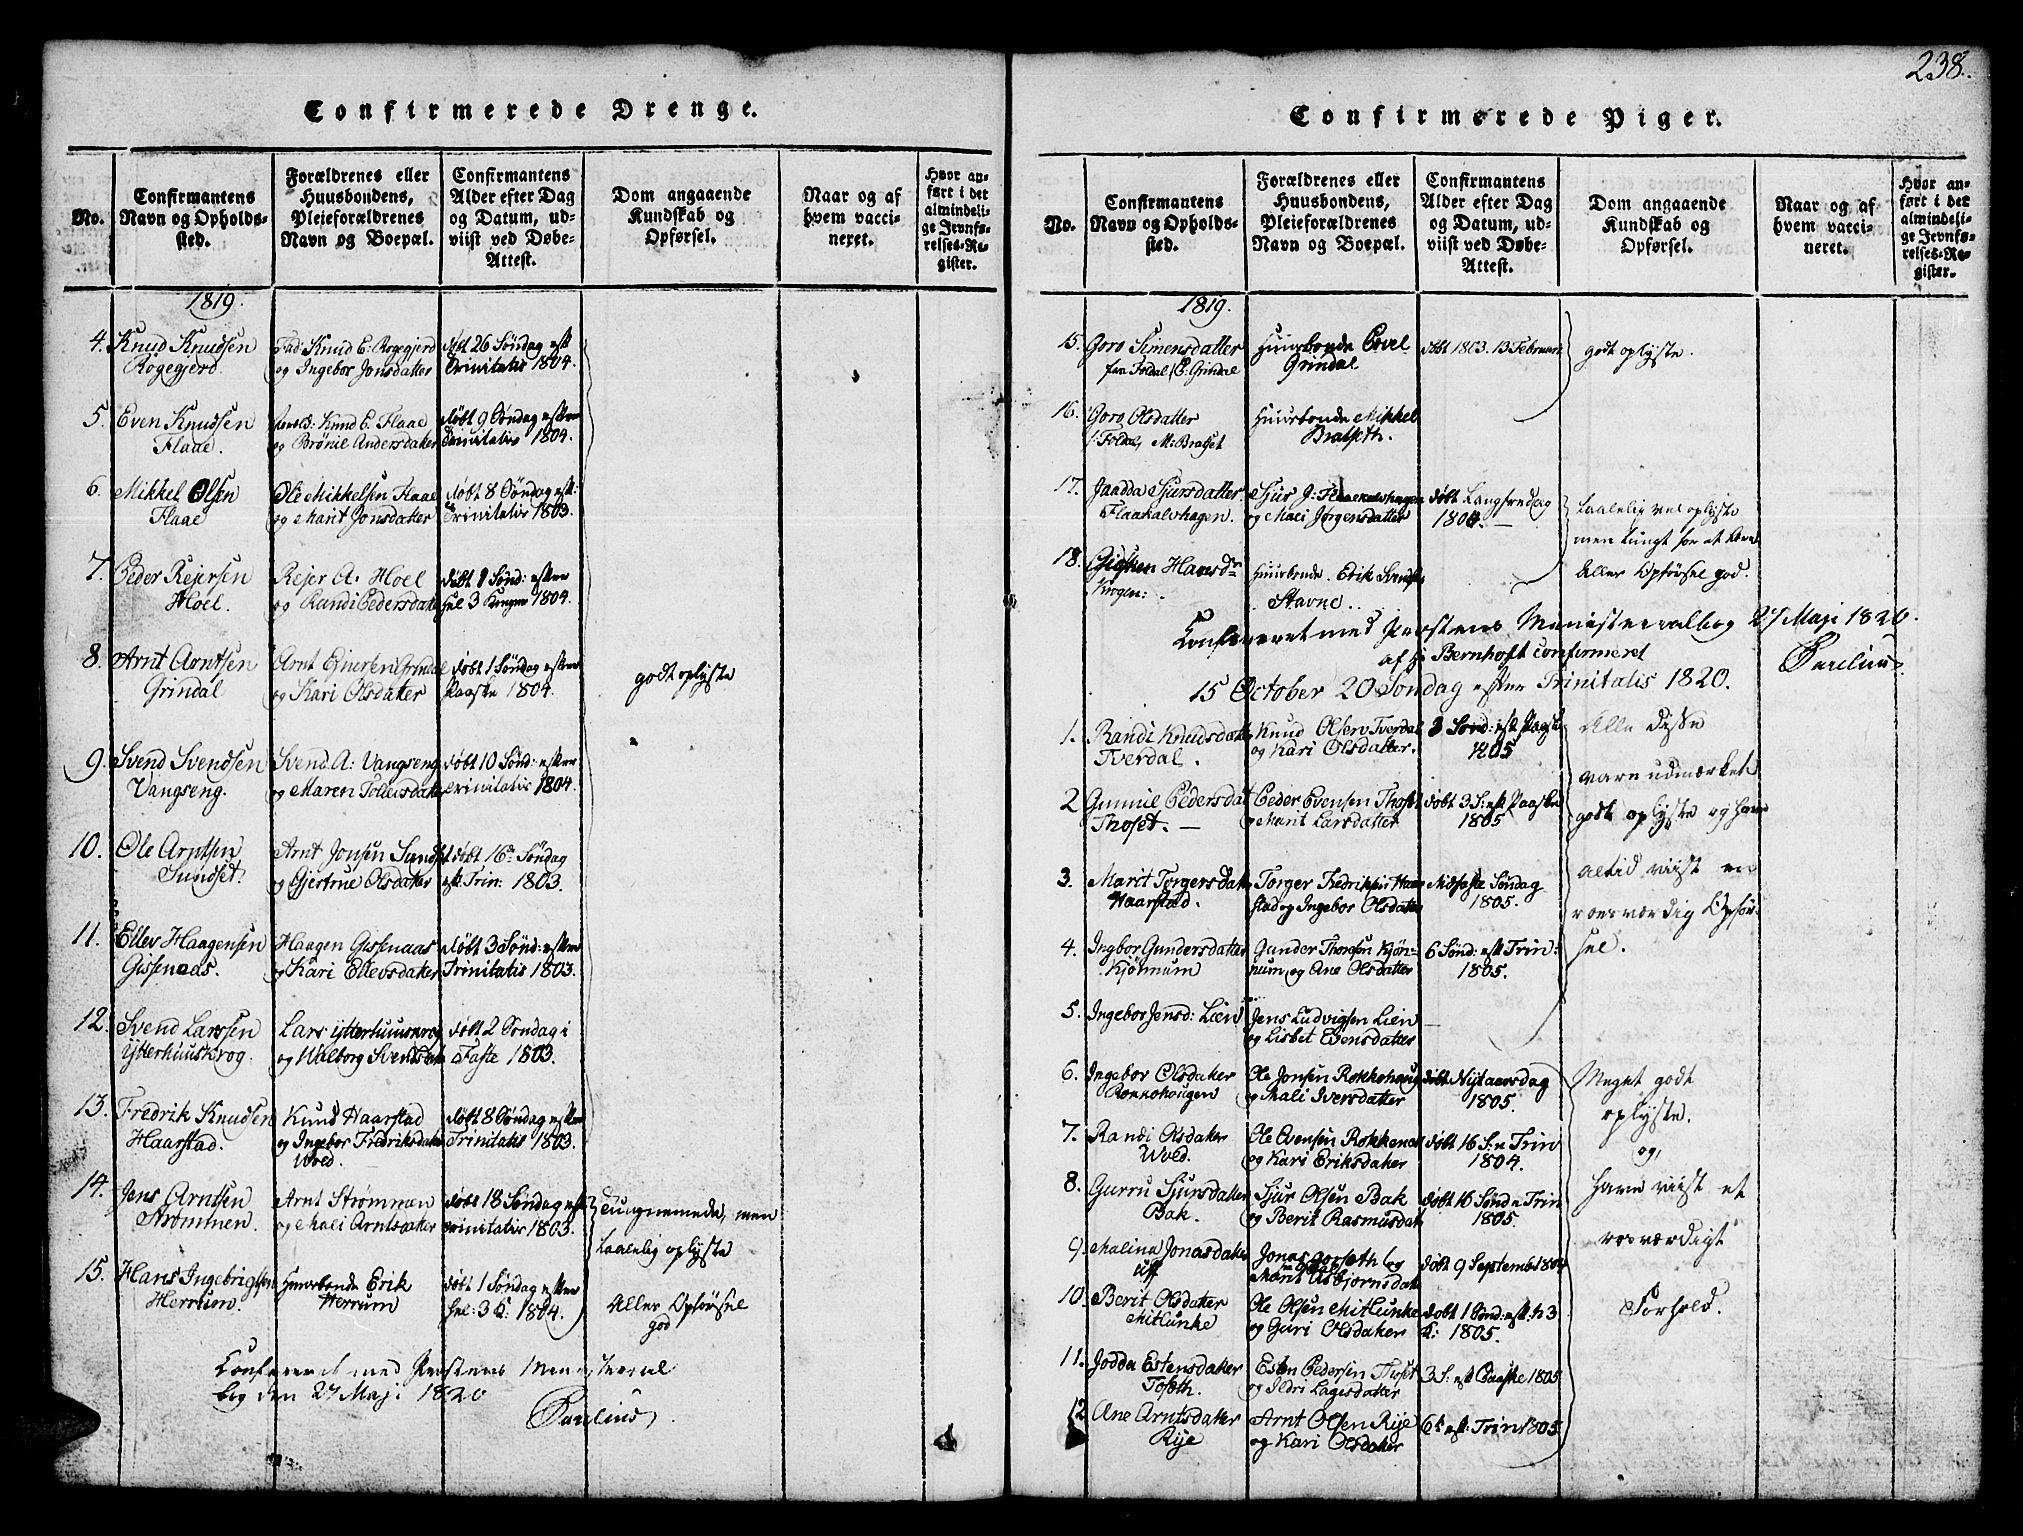 238.
Confirmerede Drenge.
No.
Confirmantens
Navn og Opholds-
sted.
Forældrenes eller
Huusbondens,
Pleieforældrenes
Navn og Boepæl.
Confirmantens
Alder efter Dag
og Datum, ud-
viist ved Døbe-
Attest.
Dom angaaende
Kundskab og
Opførsel.
Naar og af
hvem vacci-
neret.
Hvor an-
ført i det
almindeli-
ge Jevnfø-
relses-Re-
gister.
1819.
4. Knud Knudsen
Rogegjerd.
Knud E. Rogegjerd
og Ingebor Jonsdatter
døbt 26 Søndag eft
Trinitatis 1804.
5. Even Knudsen
Flaae.
Knud E. Flaae
og Brønil Andersdatter
døbt 9 Søndag efter
Trinitatis 1804.
6. Mikkel Olsen
Flaae
Ole Mikkelsen Flaae
og Marit Jonsdatter
døbt 8 Søndag eft:
Trinitatis 1803.
7. Peder Rejersen
Hoel.
Rejer A. Hoel
og Randi Pedersdatter
døbt 1 Sønd: efter
hel 3 Konger 1804.
8. Arnt Arntsen
Grindal
Arnt Ejnersen Grindal
og Kari Olsdatter
døbt 1 Søndag efter
Paaske 1804.
godt oplyste
9. Svend Svendsen
Vangseng.
Svend A: Vangseng
og Maren Tollevsdatter
døbt 10 Sønd: efter
Trinitatis 1804.
10. Ole Arntsen
Sundset.
Arnt Jonsen Sundset
og Gjertrue Olsdatter
døbt 16 Søndag
eft. Trin: 1803.
11. Ellev Haagensen
Gisenaas.
Haagen Gisenaas
og Kari Ellevsdatter
døbt 3 Sønd: efter
Trinitatis 1803.
12. Svend Larssen
Ytterhuuskrog.
Lars Ytterhuuskrog
og Walborg Svendsdatt
døbt 2 Søndag i
Faste 1803.
13. Fredrik Knudsen
Haarstad.
Knud Haarstad
og Ingebor Fredriksdatter
Woed.
døbt 8 Søndag efter
Trinitatis 1803.
14. Jens Arntsen
Strømmen.
Arnt Strømmen
og Mali Arntsdatter
døbt 18 Søndag eft
Trinitatis 1803.
tungnemede, men
taalelig oplyste
15. Hans Ingebrigtsen
Herrum.
Huusbonde Erik
Herrum
døbt 1 Søndag efter
hel: 3 K: 1804.
Aller Opførsel
god
Confereret med Præstens Ministerial
bog den 27 Maji 1820
Parelius.
Confirmerede Piger.
No.
Confirmantens
Navn og Opholds-
sted.
Forældrenes eller
Huusbondens,
Pleieforældrenes
Navn og Boepæl.
Confirmantens
Alder efter Dag
og Datum, ud-
viist ved Døbe-
Attest.
Dom angaaende
Kundskab og
Opførsel.
Naar og af
hvem vacci-
neret.
Hvor an-
ført i det
almindeli-
ge Jevnfø-
relses-Re-
gister.
1819.
15. Goro Simensdatter
fra Foldal / E. Grindal
Huusbonde Eovel
Grindal
døbt 1803. 13 Februari
godt oplyste.
16. Goro Olsdatter
Foldal, M: Bratset
Huusbonde Mikkel
Bratseth.
17. Jaadda Sjursdatter
Flaakalvhagen.
Sjur J: Flaakalvhagen
og Mari Jørgensdatter
døbt Langfredag
1804.
taalelig vel oplyste
men tungt for at
Aller Opførsel god.
18. Gisken Hansdr
Krogen:
Huusbonde. Erik
Stavne..
Confereret med Præstens Ministerialbog 27 Maji 1820.
Parelius
af Hr Bernhoft confirmeret
15 October 20 Søndag efter Trinitatis 1820.
1. Randi Knudsdatter
Tverdal.
Knud Olsen Tverdal
og Kari Olsdatter.
3 Sønd: eft Paaske
1805
Alle disse
vare udmærket
godt oplyste og have
altid viist en
roesværdig Opfør-
sel.
2 Gunnil Pedersdat
Thoset. —
Peder Evensen Thoset
og Marit Larsdatter
døbt 3 S: eft Paaske
1805
3. Marit Torgersdatter
Haarstad.
Torger Fredriksen Haar
stad og Ingebor Olsdatter
Midfaste Søndag
1805.
4. Ingbor Gundersdatter
Kjønnum
Gunder Thoresen Kjøn-
num og Ane Olsdatter
6 Sønd: eft Trin:
1805.
5. Ingebor Jensd: Lien
Jens Ludvigsen Lien
og Lisbet Evensdatter
6. Ingebor Olsdatter
Rokkehougen
Ole Jonsen Rokkehaug
og Mali Iversdatter
døbt Nytaarsdag
1805.
Meget godt
oplyste.
og,
have viist et
roesværdigt
Forhold.
7. Randi Olsdatter
Woed.
Ole Evensen Rokkenes
og Kari Eriksdatter
døbt 16 S: e Trin
1804.
8. Gurru Sjursdatter
Bak.
Sjur Olsen Bak
og Berit Rasmusdat
døbt 16 Sønd e Trin
1805.
9. Malina Jonasdatter
Uff
Marit Asbjørnsdat
døbt 9 Septemb 1804
10. Berit Olsdatter
Mitlunke
Ole Olsen Mitlunke
og Guri Olsdatter
døbt 1 Sønd: eft: h 3
K: 1805.
11. Jodda Estensdatter
Toseth.
Esten Pedersen Thoset
og Ildri Lagesdatter
3 S: eft Paaske 1805
12 Ane Arntsdatter
Rije
Arnt Olsen Rije
og Kari Olsdatter
6 S eft: Trin 1805.